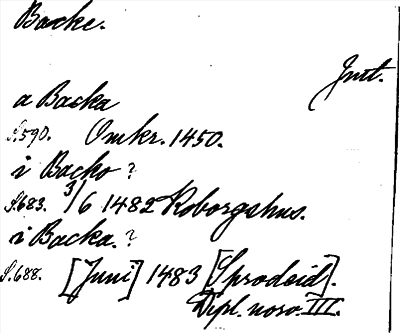 Backe.
Jnt.
a Backa
S. 590. Omkr. 1450.
i Backo ?
S. 683. 3/6 1482 Koborgshus.
i Backa. ?
S. 688. [Juni] 1483 [Sprodeid].
Dipl. norv. III.